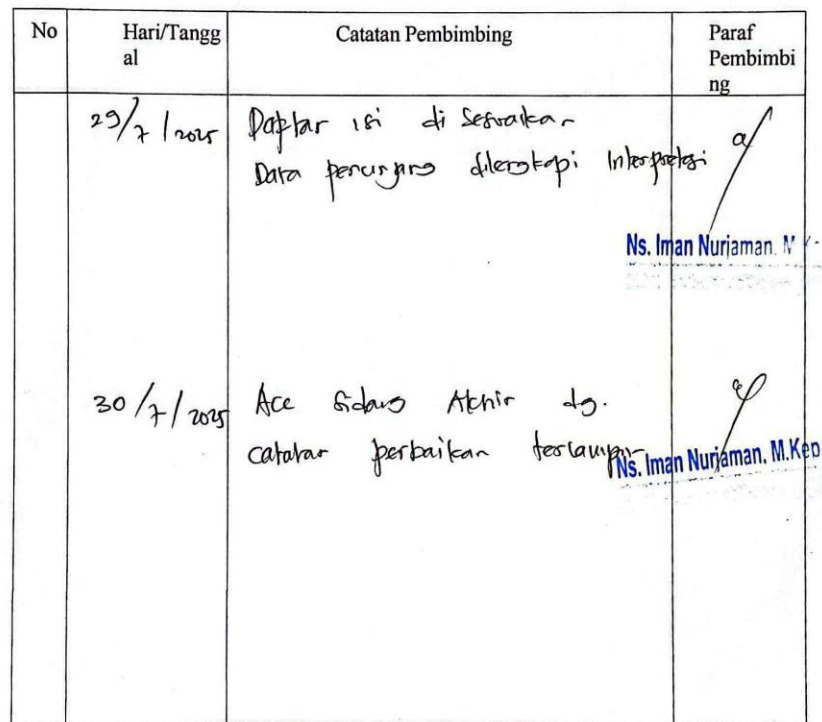 No
Hari/Tangg
al
Catatan Pembimbing
Paraf
Pembimbi
ng
29/7/2025
Daftar isi di Sesuaikan
Data penunjang dilengkapi Interpretasi
Ns. Iman Nurjaman. M
30/7/2025
Acc Sidang Akhir dg.
catatan perbaikan terlampir
Ns. Iman Nurjaman, M.Kep